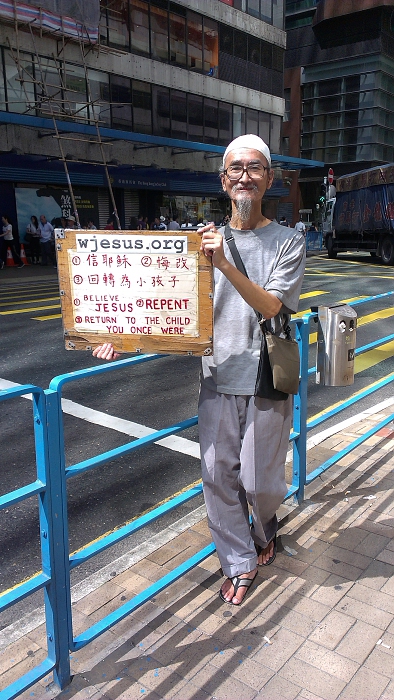 wjesus.org
① 信耶穌 ② 悔改
③ 回轉為小孩子
① BELIEVE ② REPENT
JESUS
③ RETURN TO THE CHILD
YOU ONCE WERE